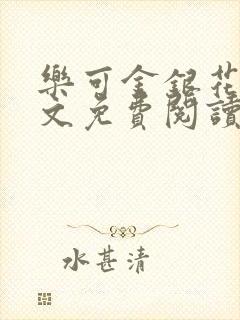 樂可金銀花
文免費閱讀
水甚清